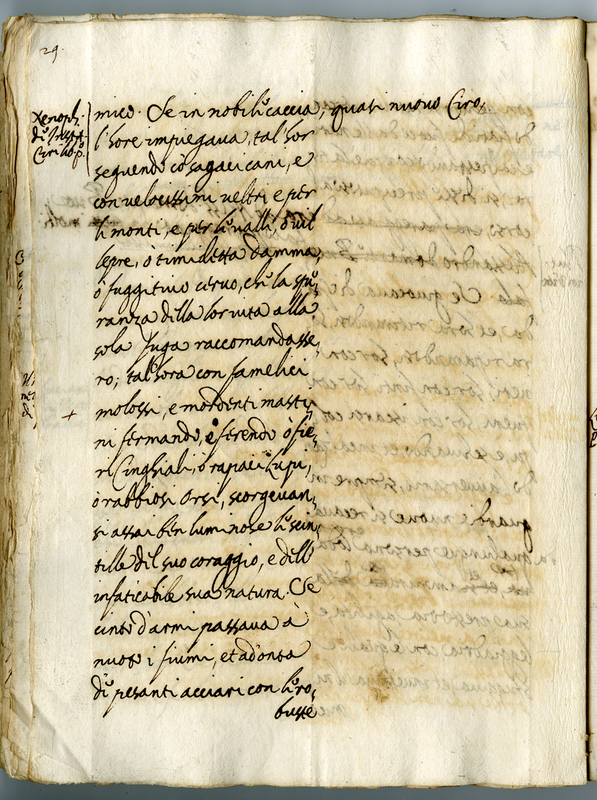 29.
Xenoph.
mico. Se in nobil caccia, quasi nuovo Ciro,
l'hore impiegaua, tal'hor
seguendo cõ sagaci cani, e
con velocissimi veltri e per
li monti, e per le valli, ò vil
lepre, ò timidetta damma,
ò fuggitiuo ceruo, che la spe,
ranza della lor vita alla
sola fuga raccomandasse,
ro; tal'hora con famelici
molossi, e mordenti masti,
ni fermando, e ferendo ò fie,
ri Cinghiali, ò rapaci Lupi,
ò rabbiosi Orsi, scorgeuan,
si assai ben luminose le scin,
tille del suo coraggio, e dell'
infaticabile sua natura. Se
cinto d'armi passaua à
nuoto i fiumi, et ad onta
di pesanti acciari con le ro,
buste